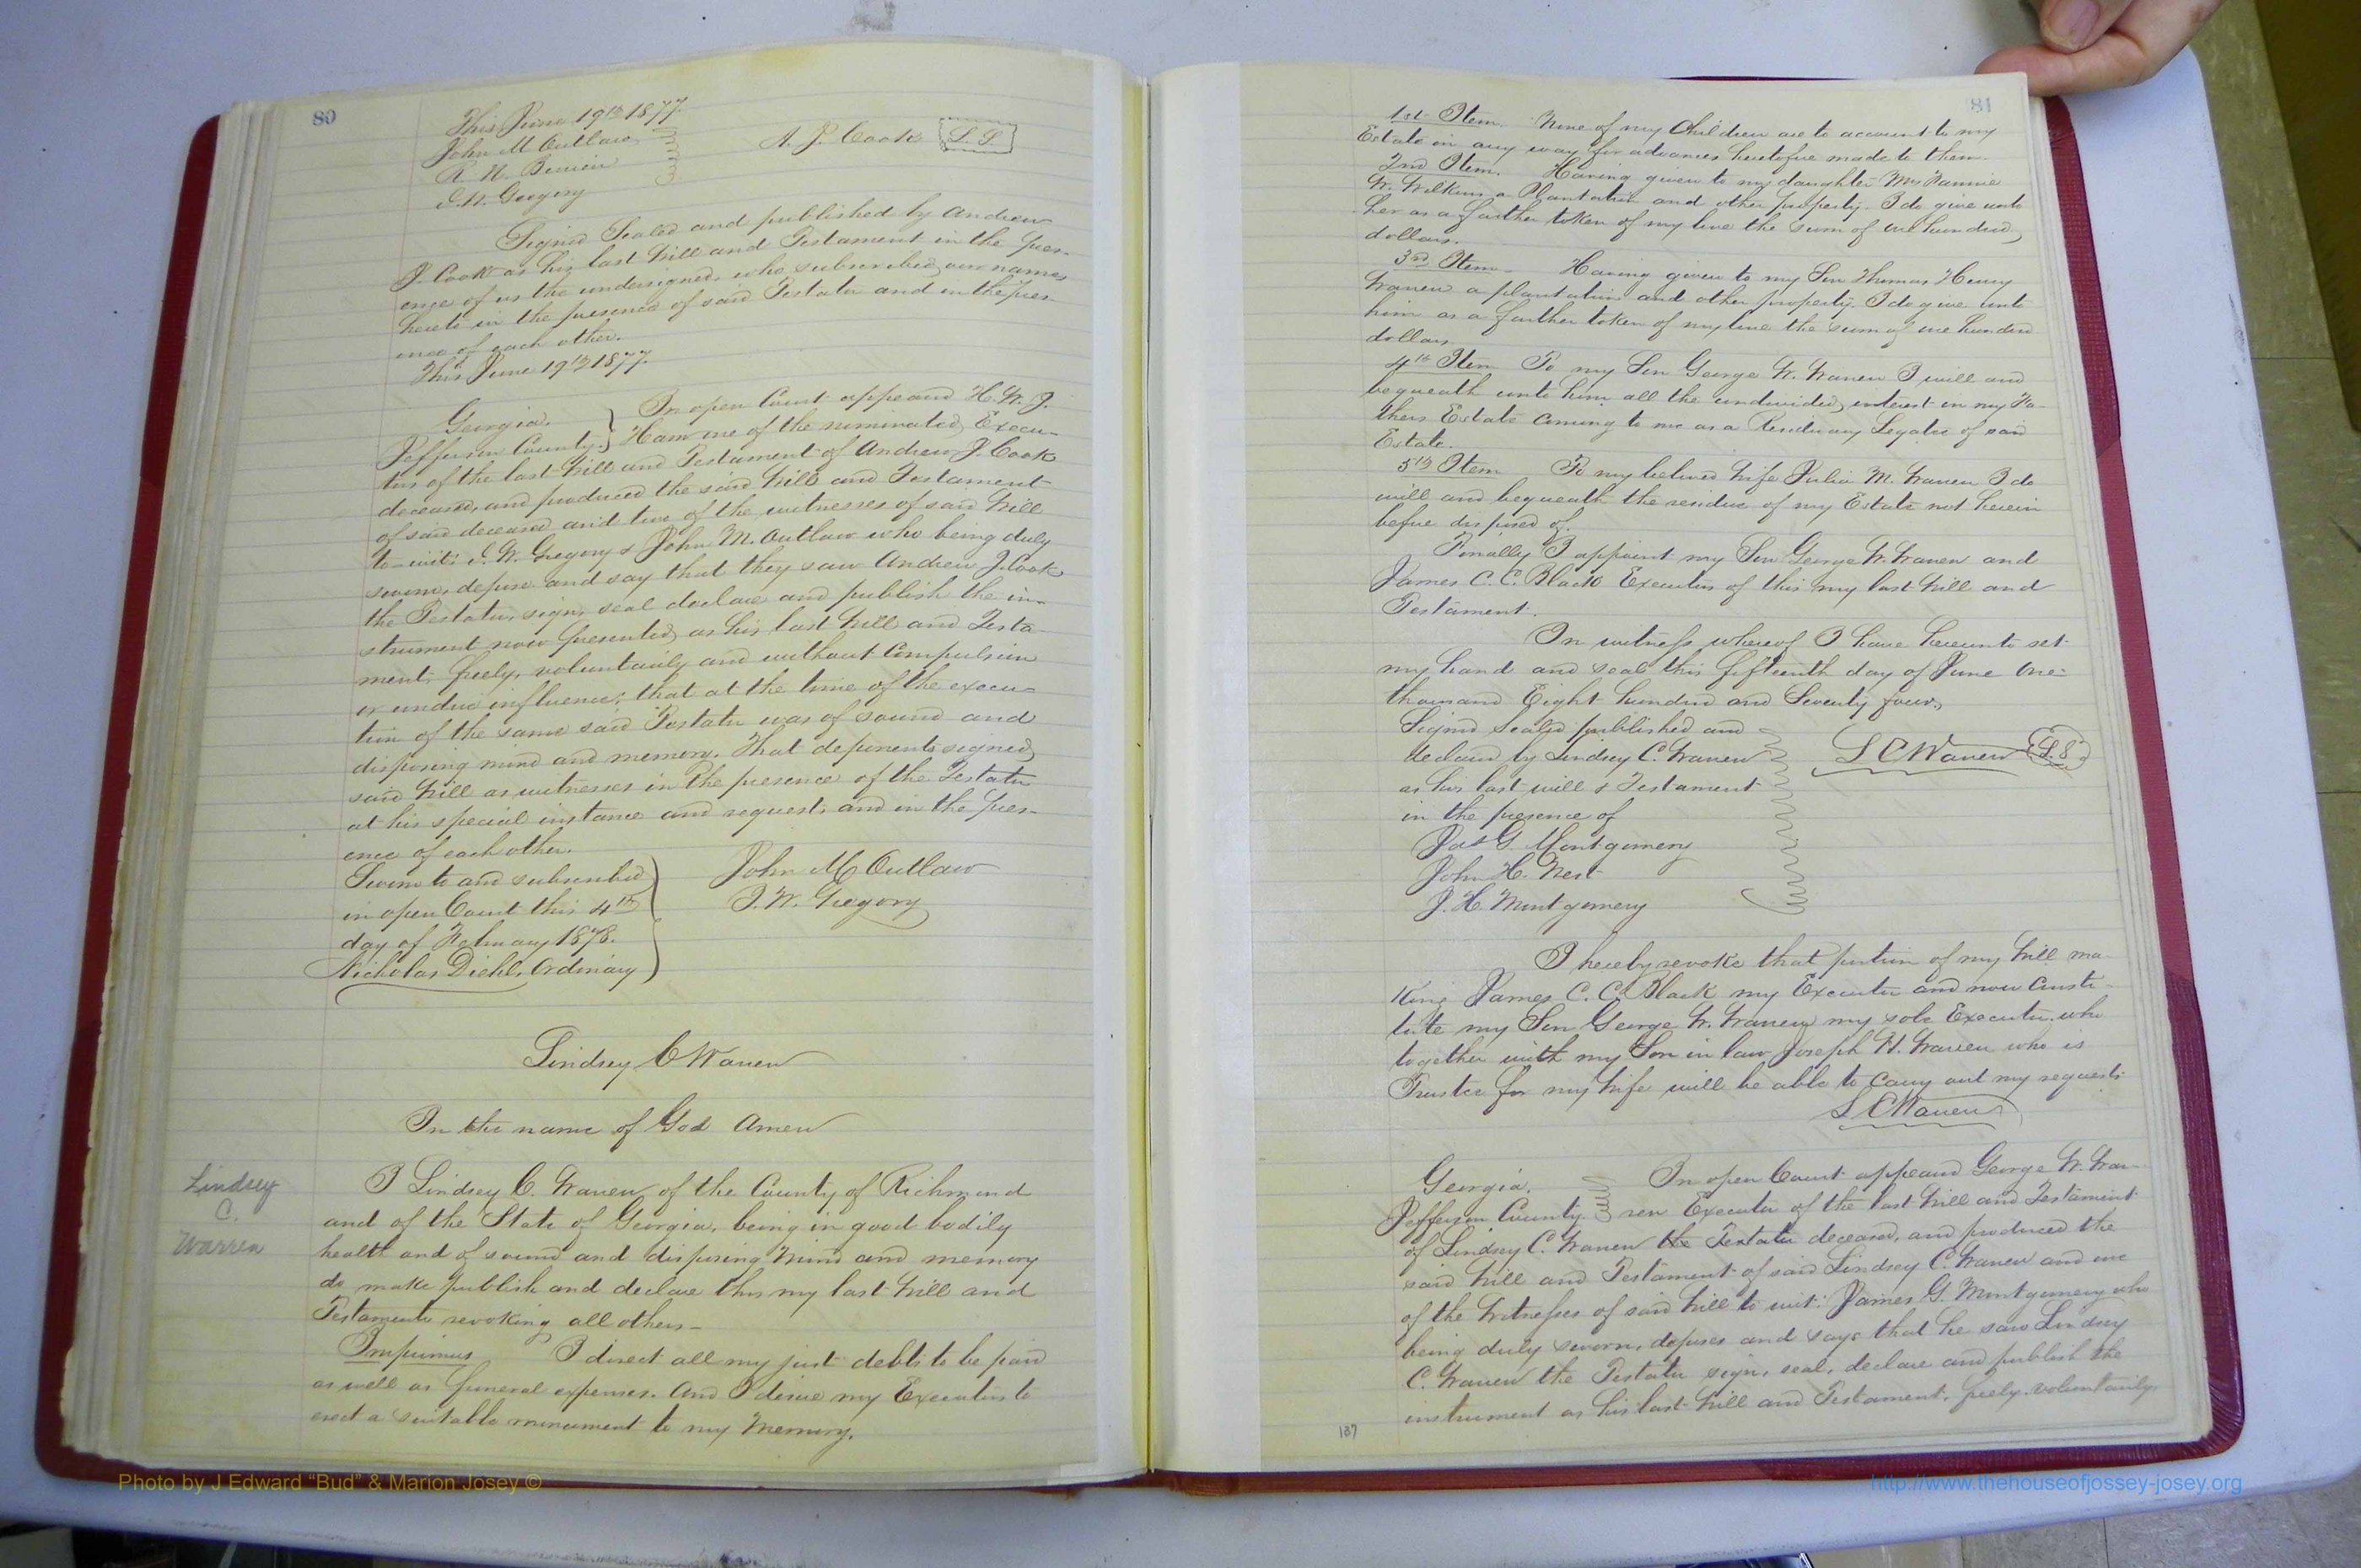 80
This June 19th 1877.
John M Outlaw
A. J. Cook L.S.
R. N.
I. W. Gregory
Signed Sealed and published by Andrew
J. Cook as his last Will and Testament in the pres-
ence of us the undersigned, who subscribed our names
hereto in the presence of said Testator and in the pres-
ence of each other.
This June 19th 1877.
Georgia, } In open Court appeared H. W. J.
Jefferson County. } Ham one of the nominated Execu-
tors of the last Will and Testament of Andrew J. Cook
deceased, and produced the said Will and Testament
of said deceased and two of the witnesses of said Will
to-wit: I. W. Gregory & John M. Outlaw who being duly
sworn, depose and say that they saw Andrew J. Cook
the Testator, sign, seal declare and publish the in-
strument now presented, as his last Will and Testa-
ment, freely, voluntarily and without Compulsion
or undue influence; that at the time of the execu-
tion of the same said Testator was of sound and
disposing mind and memory. That deponents signed
said Will as witnesses in the presence of the Testator
at his special instance and request, and in the pres-
ence of each other.
Sworn to and subscribed
in open Court this 4th
day of February 1878.
Nicholas Diehl, Ordinary
John M Outlaw
I. W. Gregory
Lindsey C Warren
In the name of God Amen
Lindsey
C.
Warren
I Lindsey C. Warren of the County of Richmond
and of the State of Georgia, being in good bodily
health and of sound and disposing mind and memory
do make publish and declare this my last Will and
Testament revoking all others-
Imprimus I direct all my just debts to be paid
as well as funeral expenses. And I desire my Executors to
erect a suitable monument to my memory.
81
1st Item. None of my Children are to account to my
Estate in any way for advances heretofore made to them.
2nd Item. Having given to my daughter Mrs Fannie
W. Wilkins a Plantation and other property. I do give unto
her as a further token of my love the sum of one hundred
dollars.
3rd Item- Having given to my Son Thomas Henry
Warren a plantation and other property. I do give unto
him as a further token of my love the sum of one hundred
dollars.
4th Item To my Son George W. Warren I will and
bequeath unto him all the undivided interest in my Fa-
thers Estate Coming to me as a Residuary Legatee of said
Estate.
5th Item To my beloved Wife Julia M. Warren I do
will and bequeath the residue of my Estate not herein
before disposed of.
Finally I appoint my Son George W. Warren and
James C. C. Black Executors of this my last Will and
Testament.
In witness whereof I have hereunto set
my hand and seal this fifteenth day of June One-
thousand Eight hundred and Seventy four.
Signed Sealed published and
declared by Lindsey C. Warren
L C Warren L.S.
as his last will & Testament
in the presence of
Jas G. Montgomery
John H. West
J. H. Montgomery
I hereby revoke that portion of my Will ma-
king James C. C. Black my Executor and now Consti-
tute my Son George W. Warren my sole Executor, who
together with my Son in law Joseph H. Warren who is
Trustee for my Wife will be able to carry out my requests
L C Warren
Georgia, In open Court appeared George W. War-
Jefferson County. ren Executor of the last Will and Testament
of Lindsey C. Warren the Testator deceased, and produced the
said Will and Testament of said Lindsey C. Warren and one
of the Witnesses of said Will to wit: James G. Montgomery who
being duly sworn, deposes and says that he saw Lindsey
C. Warren the Testator sign, seal, declare and publish the
instrument as his last Will and Testament, freely, voluntarily,
137
Photo by J Edward “Bud” & Marion Josey ©
http://www.thehouseofjossey-josey.org